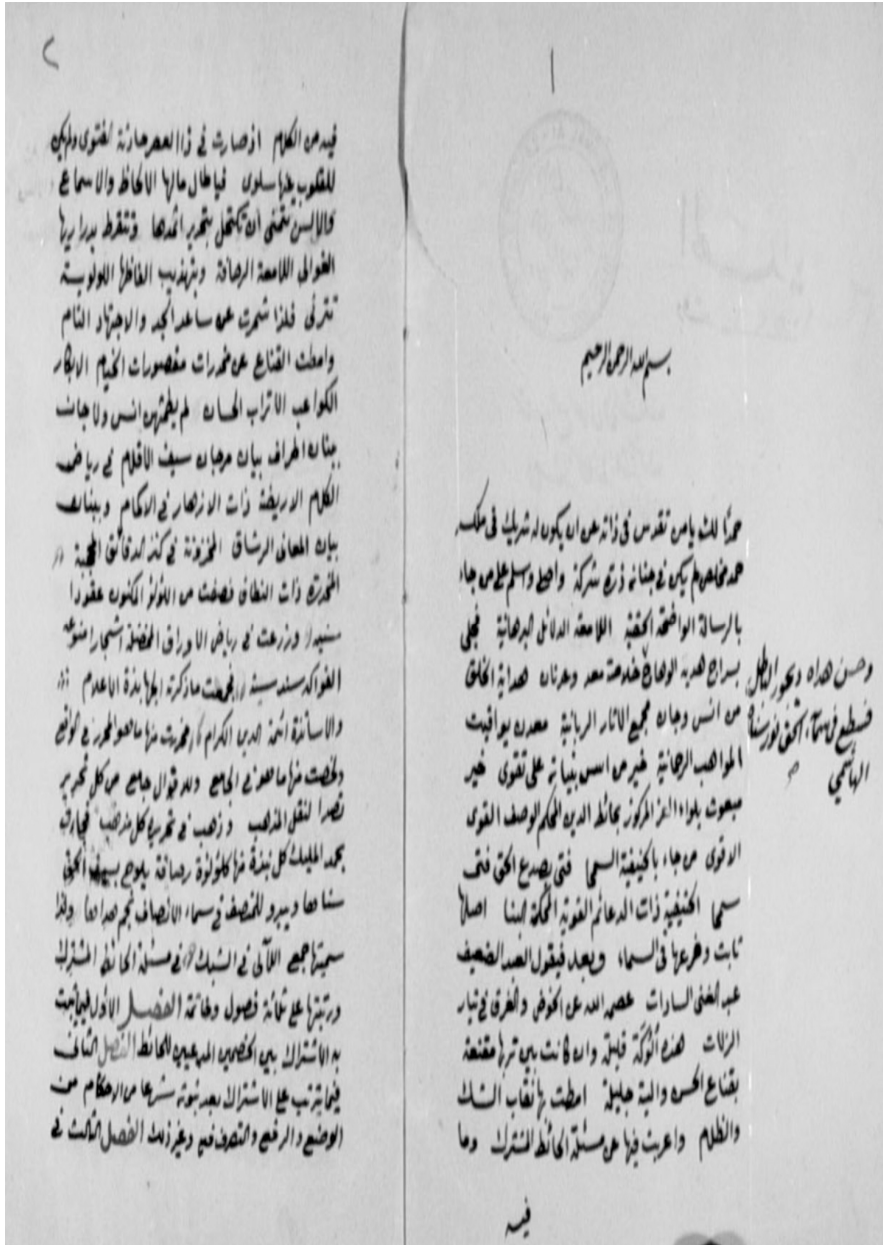 ١
بسم الله الرحمن الرحيم
حمدًا لك يامن تقدس في ذاته عن ان يكون له شريك في ملكه
حمد مخلص لم يكن في جنانه ذرة شركة واصلي واسلم على من جاء
بالرسالة الواضحة الحقية اللامعة الدلائل البرهانية فجلى
بسراج هديه الوهاج خلاصة معد وعدنان هداية الخلق
من انس وجان مجمع الاثار الربانية معدن يواقيت
المواهب الرحمانية خير من اسس بنيانه على تقوى خير
مبعوث بلواء العز المركوز بحائط الدين المحكم الوصف القوى
الاقوى من جاء بالحنيفية السمحا فتى يصدع الحق فتى
سمحا الحنيفية ذات الدعائم القوية المحكمة البنا اصلها
ثابت وفرعها في السماء وبعد فيقول العبد الضعيف
عبد الغنى السادات عصمه الله عن الخوض والغرق في تيار
الزلات هذه ألوكة قليلة وان كانت بين تربها مقنعة
بقناع الحسن والبهة جليلة امطت بها نقاب الشك
والظلام واعربت فيها عن مسئلة الحائط المشترك وما
فيه
وحسن هداه ديجور الباطل
فسطع في سماء الحق نور سناه
الهاشمي
٢
فيه من الكلام اذ صارت في ذا العصر حادثة الفتوى ولم يكن
للقلوب عنها سلوى فيا طال مالها الالحاظ والاسماع
والالسن تتمنى أن تكتحل بتحرير اثمدها وتتقرط بدراريها
الغوالى اللامعة الرصافة وبتهذيب الفاظها اللولوية
تترقى فلذا شمرت عن ساعد الجد والاجتهاد التام
وامطت القناع عن مخدرات مقصورات الخيام الابكار
الكواعب الاتراب الحسان لم يطمثهن انس ولا جان
ببنان اطراف بيان مرجان سيف الاقلام في رياض
الكلام الاريضة ذات الازهار في الاكمام وببنان
بيان المعانى الرشاق المخزونة في كنز الدقائق المحجبة
المخدرة ذات النطاق فصغت من اللولو المكنون عقودا
وزرعت في رياض الاوراق المخضلة اشجارا متنوعة
الفواكه سندسية فجمعت ماذكرته الجهابذة الاعلام
والاساتذة ائمة الدين الكرام فحررت منها ما هو المحرر في الواقع
ولخصت منها ما هو في الجامع وللاقوال جامع من كل تحرير
قصدا لنقل المذهب وذهب في تحريره كل مذهب فجاءت
بحمد المليك كل نبذة منها كلؤلؤة رصافة يلوح بسيف الحق
سناها ويبدو للمنصف في سماء الانصاف نجم هداها ولذا
سميتها جمع اللآلى في الشبك في مسئلة الحائط المشترك
ورتبتها على ثلاثة فصول وخاتمة الفصل الاول فيما يثبت
به الاشتراك بين الخصمين المدعيين للحائط الفصل الثانى
فيما يترتب على الاشتراك بعد ثبوته شرعا من الاحكام من
الوضع والرفع والتصرف فيه وغير ذلك الفصل الثالث في